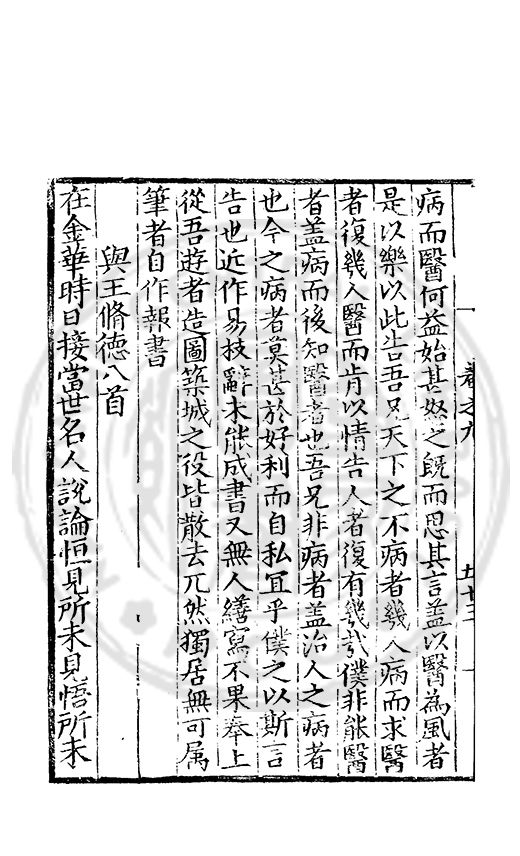 病而醫何益始甚怒之既而思其言蓋以醫為風者
是以樂以此告吾兄天下之不病者幾人病而求醫
者復幾人醫而肯以情告人者復有幾哉僕非能醫
者蓋病而後知醫者也吾兄非病者蓋治人之病者
也今之病者莫甚於好利而自私冝乎僕之以斯言
告也近作易技辭未能成書又無人繕寫不果奉上
從吾遊者造圖築城之役皆散去兀然獨居無可属
筆者自作報書
與王脩德八首
在金華時日接當世名人說論恒見所未見悟所未
卷之九